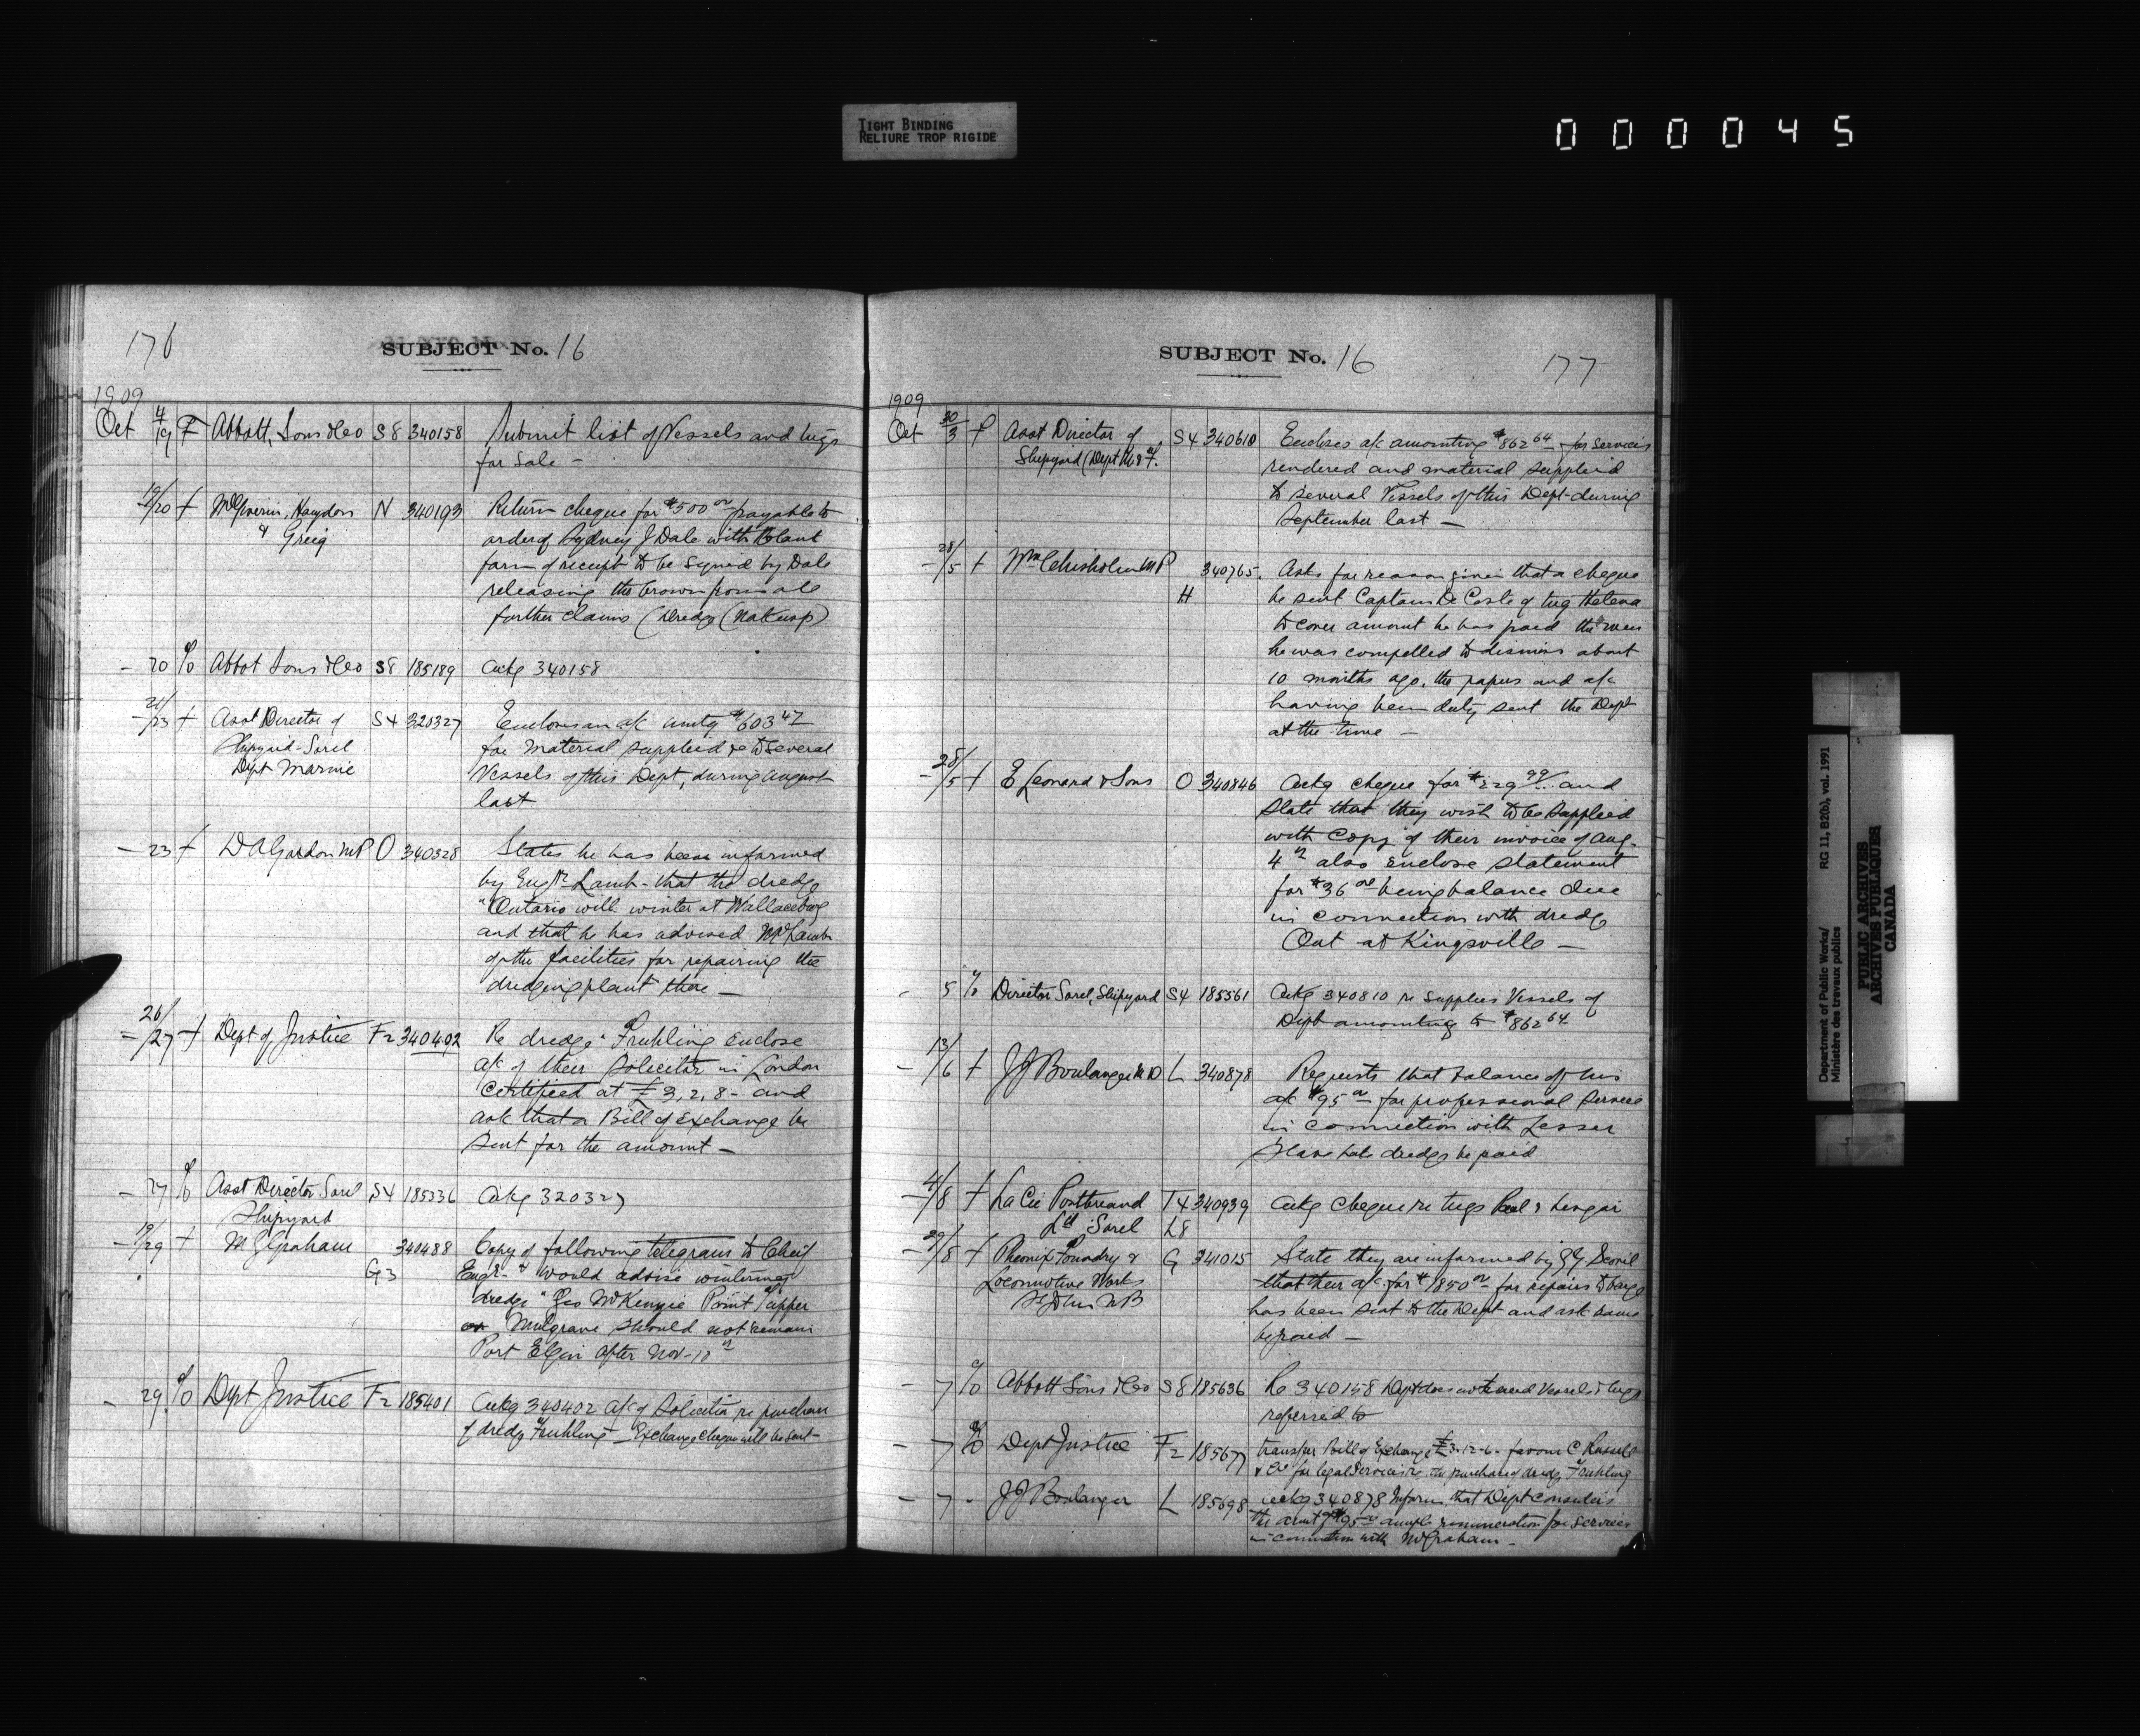 TIGHT BINDING
RELIURE TROP RIGIDE
000045
176
SUBJECT No. 16
1909
Oct 4/19 F Abbott, Sons & Co S8 340158 Submit list of Vessels and tugs
for sale -
19/20 f McGiverin, Haydon N 340193 Return cheque for $500 00 payable to
& Greig order of Sydney J Dale with blank
form of receipt to be signed by Dale
releasing the Crown from all
further claims (Dredge
- 20 % Abbot Sons & Co S8 185189 Ackg 340158
- 21/23 f Asst Director of S4 320327 Encloses an a/c amtg $603 47
Shipyard-Sorel for material supplied to several
Dept Marine Vessels of this Dept, during August
last
- 23 f D A Gordon MP O 340328 States he has been informed
by Engr Lamb - that the dredge
"Ontario will winter at Wallaceburg
and that he has advised Mr Lamb
of the facilities for repairing the
dredging plant there -
26/27 f Dept of Justice F2 340402 Re dredge "Fruhling enclose
a/c of their Solicitor in London
certified at £3,2,8 - and
ask that a Bill of Exchange be
sent for the amount -
- 27 % Asst Director Sorel S4 185336 Ackg 320327
Shipyard
- 19/29 f M G Graham 340488 Copy of following telegram to Chief
G3 Engr - "would advise wintering
dredge "Geo McKenzie Point Tupper
or Mulgrave should not remain
Port Elgin after Nov - 10th
- 29 % Dept Justice F2 185401 Ackg 340402 a/c of Solicitor re purchase
of dredge "Fruhling - Exchange cheque will be sent -
SUBJECT No. 16
177
1909
Oct 30/3 f Asst Director of S4 340610 Encloses a/c amounting $862 64 - for services
Shipyard (Dept M. & F. rendered and material supplied
to several Vessels of this Dept - during
September last -
- 28/5 f Wm Chisholm MP 340765. Asks for reason given that a cheque
H be sent Captain De Coste of tug Helena
to cover amount he has paid the men
he was compelled to dismiss about
10 months ago, the papers and a/c
having been duly sent the Dept
at the time -
- 28/5 f E Leonard & Sons O 340846 Ackg cheque for $229 99 and
state that they wish to be supplied
with Copy of their invoice of Aug.
4th also enclose statement
for $36 00 being balance due
in connection with dredge
Ont at Kingsville -
- 5 % Director Sorel, Shipyard S4 185561 Ackg 340810 re supplies Vessels of
Dept amounting to $862 64
- 13/6 f J J Boulanger M D L 340878 Requests that balance of his
a/c $95 00 for professional services
in connection with Lesser
Slave Lake dredge be paid
- 4/8 f La Cie Pontbriand T4 340939 Ackg cheque re tugs
Ltd Sorel L8
- 29/8 f Phoenix Foundry & G 341015 State they are informed by
Locomotive Works that their a/c for $1850 00 for repairs to barge
St John NB has been sent to the Dept and ask same
be paid -
- 7 % Abbott Sons & Co S8 185636 Re 340158 Dept does not need Vessels & tugs
referred to
- 7 % Dept Justice F2 185677 transfer Bill of Exchange £3-12-6 - favour C Russell
& Co for legal services re the purchase of dredge "Fruhling
- 7 - J J Boulanger L 185698 Ackg 340878 Inform that Dept considers
the amt of $95 00 ample remuneration for services
in connection with McGraham -
Department of Public Works/ RG 11, B2(b), vol. 1991
Ministère des travaux publics
PUBLIC ARCHIVES
ARCHIVES PUBLIQUES
CANADA